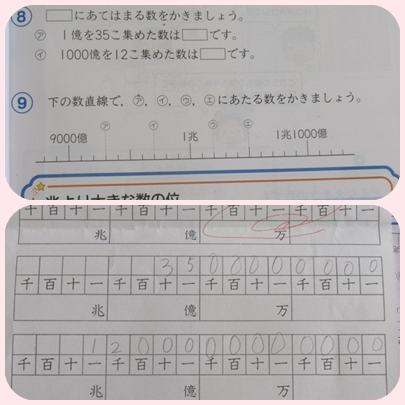 ⑧ □にあてはまる数をかきましょう。
㋐ 1億を35こ集めた数は□です。
㋑ 1000億を12こ集めた数は□です。
⑨ 下の数直線で，㋐，㋑，㋒，㋓にあたる数をかきましょう。
㋐ ㋑ ㋒ ㋓
9000億 1兆 1兆1000億
兆より大きな数の位
千百十一千百十一千百十一千百十一
兆 億 万
3 5 0 0 0 0 0 0 0 0
千百十一千百十一千百十一千百十一
兆 億 万
1 2 0 0 0 0 0 0 0 0 0 0 0 0
千百十一千百十一千百十一千百十一
兆 億 万